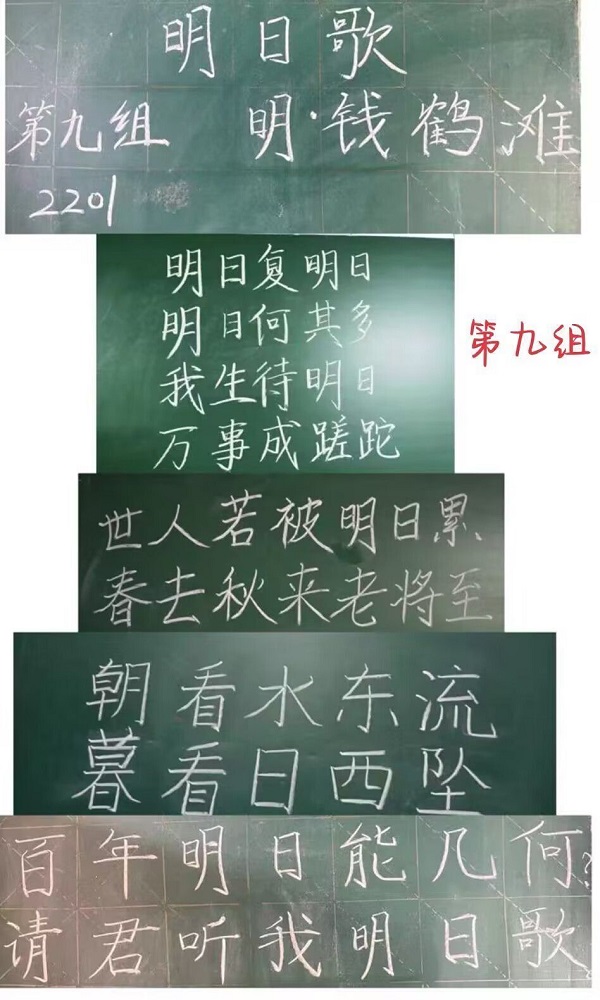 明日歌
第九组 明·钱鹤滩
2201
明日复明日
明日何其多
第九组
我生待明日
万事成蹉跎
世人若被明日累
春去秋来老将至
朝看水东流
暮看日西坠
百年明日能几何?
请君听我明日歌